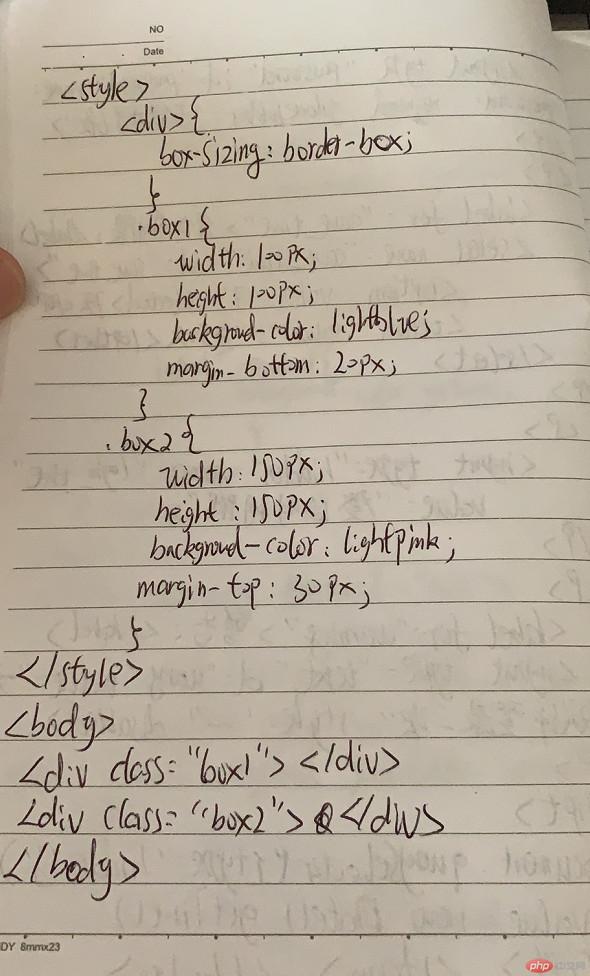 NO
Date
<style>
<div>{
box-sizing: border-box;
}
.box1{
width: 100px;
height: 100px;
backgroud-color: lightblue;
margin-bottom: 20px;
}
.box2{
width: 150px;
height: 150px;
backgroud-color: lightpink;
margin-top: 30px;
}
</style>
<body>
<div class="box1"></div>
<div class="box2"></div>
</body>
DY 8mmx23
php